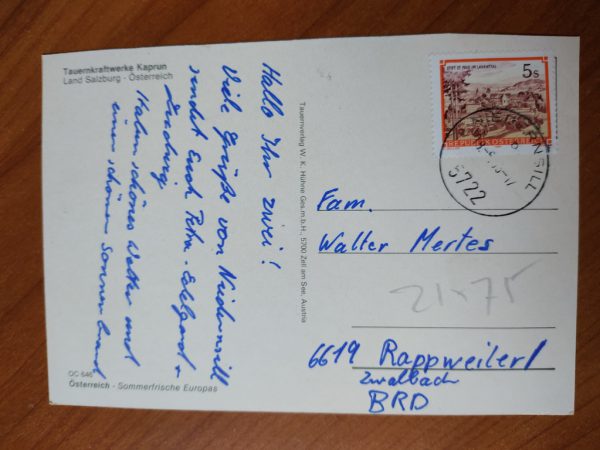 Tauernkraftwerke Kaprun
Land Salzburg - Österreich
Hallo Ihr zwei!
Viele Grüße von Niedernsill
sendet Euch Petra - Edelgard +
Haben schönes Wetter und
einen schönen Sonnenbrand
OC 646
Österreich - Sommerfrische Europas
Tauernverlag W. K. Hühne Ges.m.b.H., 5700 Zell am See, Austria
STIFT ST. PAUL IM LAVANTTAL
5s
REPUBLIK ÖSTERREICH
NIEDERNSILL
5722
Fam.
Walter Mertes
21x75
6619 Rappweiler/
Zwalbach
BRD